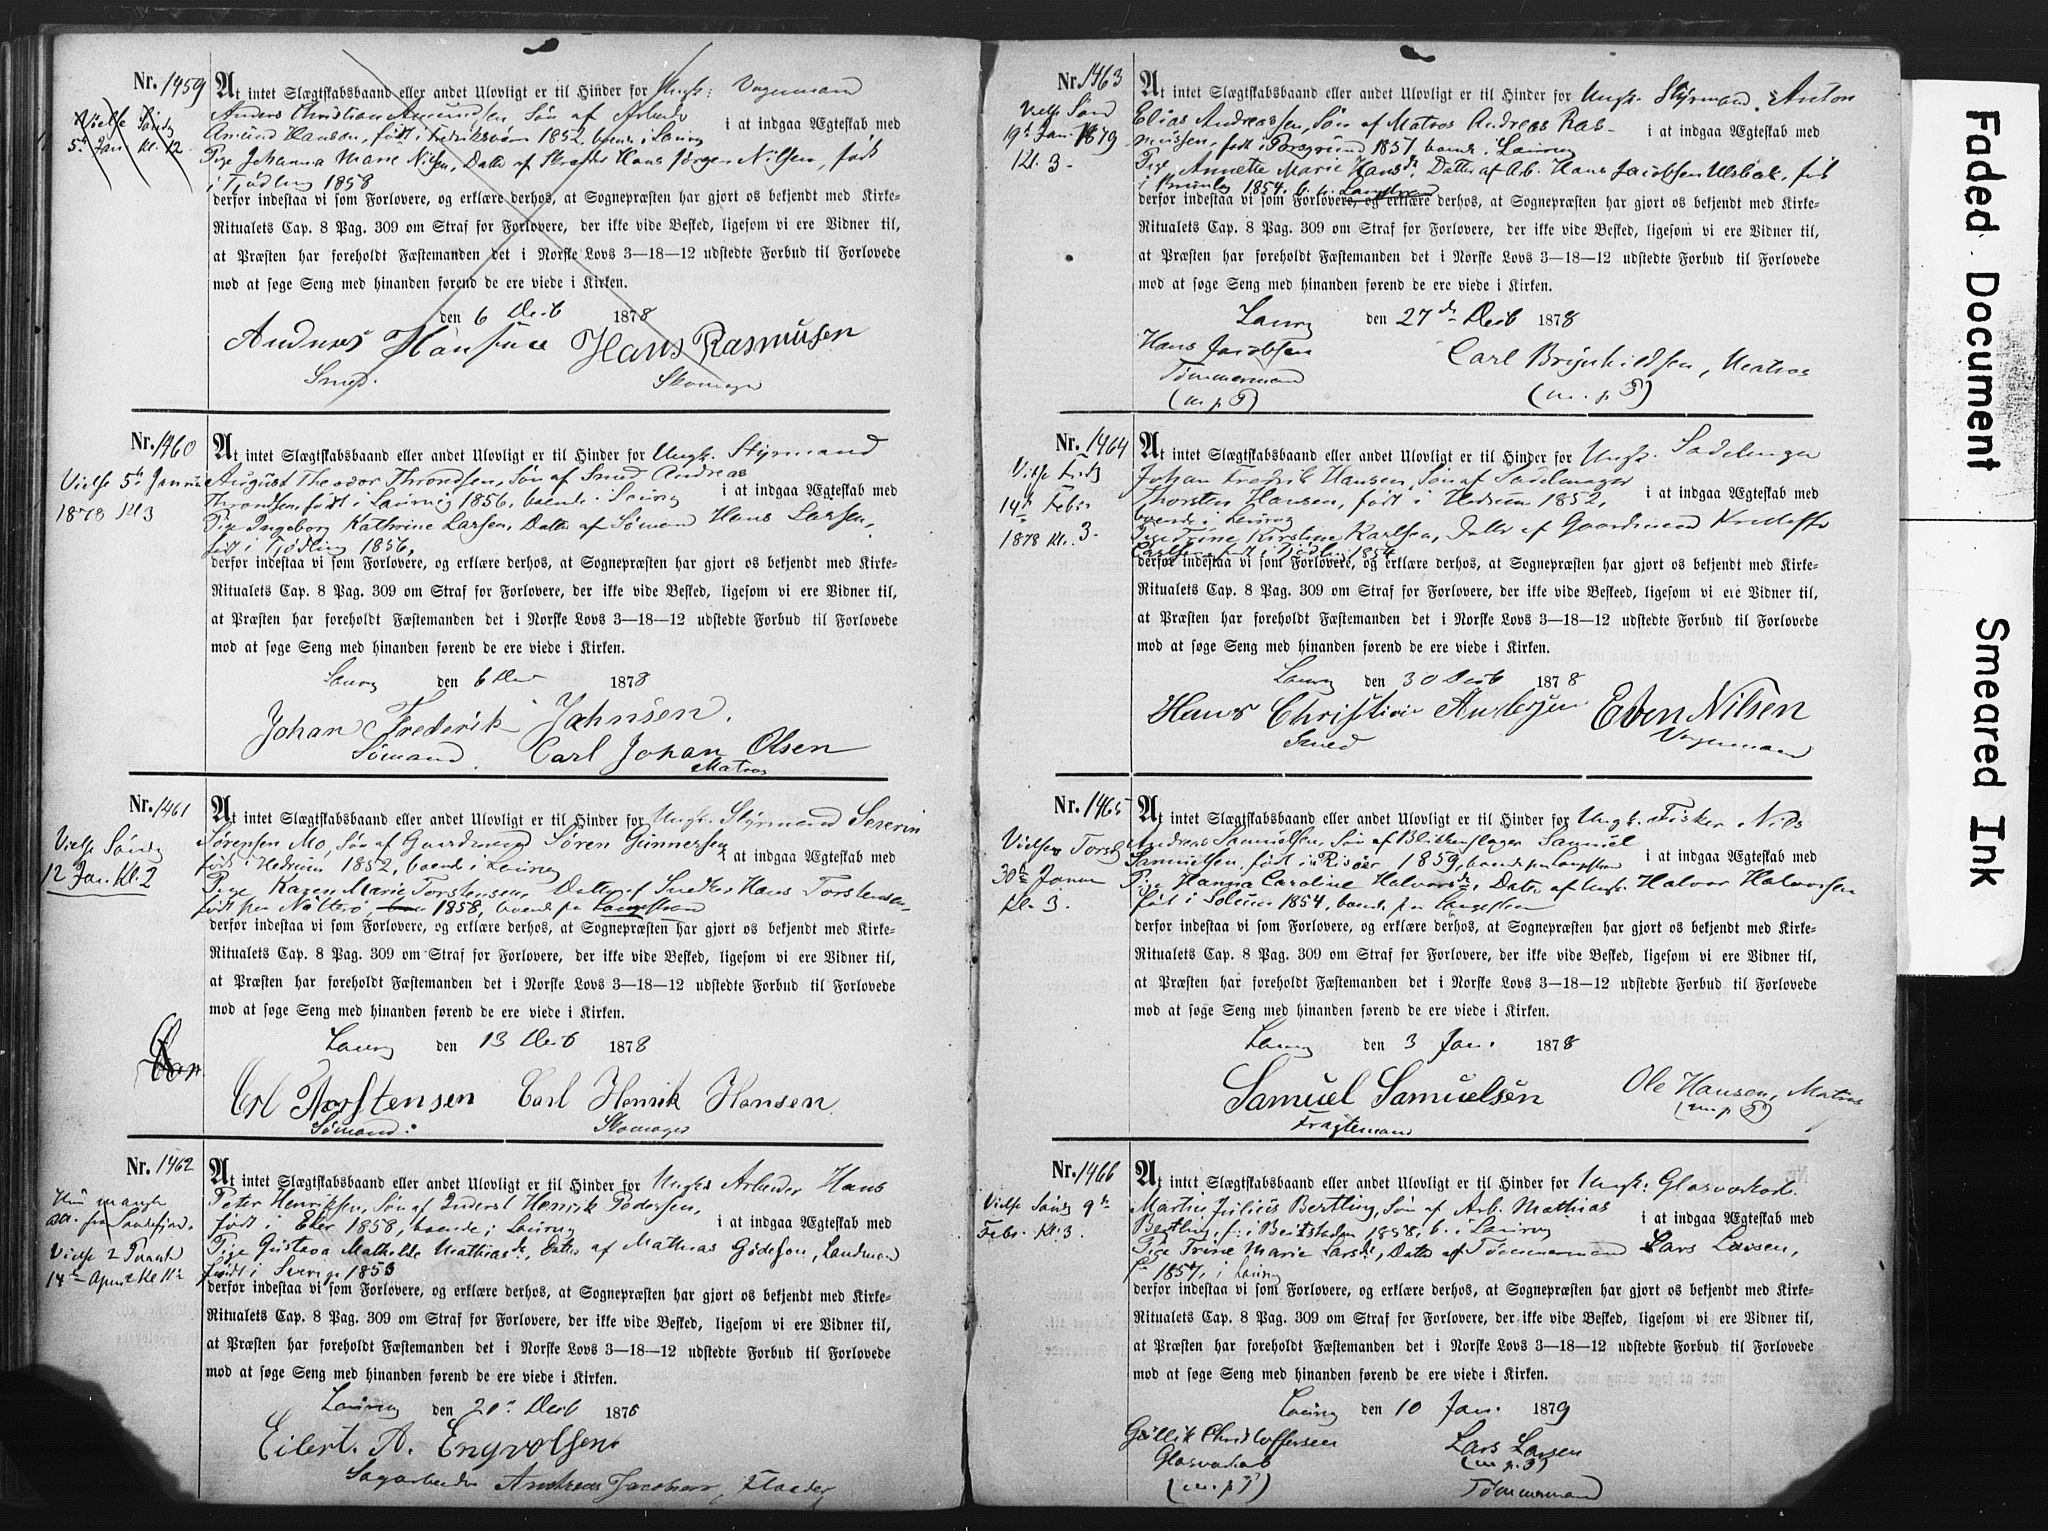 Nr. 1459
Vielse Søndg
5te Jan Kl. 12
At intet Slægtskabsbaand eller andet Ulovligt er til Hinder for Ungk: Vognmand
Anders Christian Amundsen, Søn af Arbdr
Amund Hansen, født i Fredriksværn 1852, boende i Laurvig
i at indgaa Ægteskab med
Pige Johanna Marie Nilsen, Datter af Hans Jørgen Nilsen, født
i Tjødling 1858
derfor indestaa vi som Forlovere, og erklære derhos, at Sognepræsten har gjort os bekjendt med Kirke-
Ritualets Cap. 8 Pag. 309 om Straf for Forlovere, der ikke vide Besked, ligesom vi ere Vidner til,
at Præsten har foreholdt Fæstemanden det i Norske Lovs 3—18—12 udstedte Forbud til Forlovede
mod at søge Seng med hinanden førend de ere viede i Kirken.
den 6 Decb 1878
Andreas Hansen Hans Rasmusen
Smed. Skomager
Nr. 1460
Vielse 5te Januar
1878 Kl 3
At intet Slægtskabsbaand eller andet Ulovligt er til Hinder for Ungk. Styrmand
August Theodor Throndsen, Søn af Smed Andreas
Throndsen, født i Laurvig 1856, boende i Laurvig
i at indgaa Ægteskab med
Pige Ingeborg Kathrine Larsen, Datter af Sømand Hans Larsen,
født i Tjødling 1856,
derfor indestaa vi som Forlovere, og erklære derhos, at Sognepræsten har gjort os bekjendt med Kirke-
Ritualets Cap. 8 Pag. 309 om Straf for Forlovere, der ikke vide Besked, ligesom vi ere Vidner til,
at Præsten har foreholdt Fæstemanden det i Norske Lovs 3—18—12 udstedte Forbud til Forlovede
mod at søge Seng med hinanden førend de ere viede i Kirken.
Laurvg den 6 Dec 1878
Johan Frederik Jahnsen.
Sømand. Carl Johan Olsen
Matros
Nr. 1461
Vielse Søndg
12 Jan. Kl. 2
At intet Slægtskabsbaand eller andet Ulovligt er til Hinder for Ungk. Styrmand Severin
Sørensen Mo, Søn af Gaardmand Søren Gunnersen
født i Hedrum 1852, boende i Laurvig
i at indgaa Ægteskab med
Pige Karen Marie Torstensen, Datter af Snedker Hans Torstensen
født paa Nøtterø, 1858, boende paa Langestrand
derfor indestaa vi som Forlovere, og erklære derhos, at Sognepræsten har gjort os bekjendt med Kirke-
Ritualets Cap. 8 Pag. 309 om Straf for Forlovere, der ikke vide Besked, ligesom vi ere Vidner til,
at Præsten har foreholdt Fæstemanden det i Norske Lovs 3—18—12 udstedte Forbud til Forlovede
mod at søge Seng med hinanden førend de ere viede i Kirken.
Laurvg den 13 Decb 1878
Torstensen Carl Henrik Hansen
Sømand. Skomager
Nr. 1462
Hun mangler
Att. fra Sandefjord.
Vielse 2 Paaske
14de April Kl 11½
At intet Slægtskabsbaand eller andet Ulovligt er til Hinder for Ungk. Arbeider Hans
Peter Henriksen, Søn af Inderst Henrik Pedersen,
født i Eker 1858, boende i Laurvig
i at indgaa Ægteskab med
Pige Gustava Mathilde Mathiasdr, Datter af Mathias Gødeson, Landmand
født i Sverige 1853
derfor indestaa vi som Forlovere, og erklære derhos, at Sognepræsten har gjort os bekjendt med Kirke-
Ritualets Cap. 8 Pag. 309 om Straf for Forlovere, der ikke vide Besked, ligesom vi ere Vidner til,
at Præsten har foreholdt Fæstemanden det i Norske Lovs 3—18—12 udstedte Forbud til Forlovede
mod at søge Seng med hinanden førend de ere viede i Kirken.
Laurvg den Decb 1878
Eilert. A. Engvolsen
Sagarbeider Andreas Jacobsen, Flaader
Nr. 1463
Vielse Sønd
19de Jan. 1879
Kl. 3.
At intet Slægtskabsbaand eller andet Ulovligt er til Hinder for Ungk. Styrmand, Anton
Elias Andreassen, Søn af Matros Andreas Ras-
mussen, født i Porsgrund 1857, boende i Laurvig
i at indgaa Ægteskab med
Pige Annette Marie Hansdr Datter af Arb. Hans Jacobsen Ulsbak, født
i Brunla 1854. b. i Langestrand
derfor indestaa vi som Forlovere, og erklære derhos, at Sognepræsten har gjort os bekjendt med Kirke-
Ritualets Cap. 8 Pag. 309 om Straf for Forlovere, der ikke vide Besked, ligesom vi ere Vidner til,
at Præsten har foreholdt Fæstemanden det i Norske Lovs 3—18—12 udstedte Forbud til Forlovede
mod at søge Seng med hinanden førend de ere viede i Kirken.
Laurvg den 27de Decb 1878
Hans Jacobsen Carl Brynhildsen, Matros
Tømmermand (m. p P)
(m p P)
Nr. 1464
Vielse Fredg
14de Febr
1878 Kl. 3.
At intet Slægtskabsbaand eller andet Ulovligt er til Hinder for Ungk. Sadelmager
Johan Fredrik Hansen, Søn af Sadelmager
Thorsten Hansen, født i Hedrum 1852,
boende i Laurvig
i at indgaa Ægteskab med
Pige Trine Kirstine Karlsen, Datter af Gaardmand Kristoffer
Carlsen, født i Tjødling 1854
derfor indestaa vi som Forlovere, og erklære derhos, at Sognepræsten har gjort os bekjendt med Kirke-
Ritualets Cap. 8 Pag. 309 om Straf for Forlovere, der ikke vide Beskeed, ligesom vi ere Vidner til,
at Præsten har foreholdt Fæstemanden det i Norske Lovs 3—18—12 udstedte Forbud til Forlovede
mod at søge Seng med hinanden førend de ere viede i Kirken.
Laurvg den 30 Decb 1878
Hans Christian Andersen Even Nilsen
Smed Vognmand
Nr. 1465
Vielse Torsdg
30te Januar
Kl. 3.
At intet Slægtskabsbaand eller andet Ulovligt er til Hinder for Ungk. Fisker Nils
Andreas Samuelsen, Søn af Blikkenslager Samuel
Samuelsen, født i Risøer 1859, boende paa Langestrand
i at indgaa Ægteskab med
Pige Hanna Caroline Halvorsdr, Datter af Ungk. Halvor Halvorsen
født i Solum 1854, boende paa Langestrand
derfor indestaa vi som Forlovere, og erklære derhos, at Sognepræsten har gjort os bekjendt med Kirke-
Ritualets Cap. 8 Pag. 309 om Straf for Forlovere, der ikke vide Besked, ligesom vi ere Vidner til,
at Præsten har foreholdt Fæstemanden det i Norske Lovs 3—18—12 udstedte Forbud til Forlovede
mod at søge Seng med hinanden førend de ere viede i Kirken.
Laurvg den 3 Jan. 1878
Samuel Samuelsen Ole Hansen, Matros
Fragtemand (m. p P)
Nr. 1466
Vielse Søndg 9de
Febr. Kl. 3.
At intet Slægtskabsbaand eller andet Ulovligt er til Hinder for Ungk: Glasværksarb.
Martin Julius Bertling, Søn af Arb. Mathias
Bertling, f: i Beitstaden 1858, b. i Laurvig
i at indgaa Ægteskab med
Pige Trine Marie Larsdr, Datter af Tømmermand Lars Larsen,
f. 1857, i Laurvig
derfor indestaa vi som Forlovere, og erklære derhos, at Sognepræsten har gjort os bekjendt med Kirke-
Ritualets Cap. 8 Pag. 309 om Straf for Forlovere, der ikke vide Besked, ligesom vi ere Vidner til,
at Præsten har foreholdt Fæstemanden det i Norske Lovs 3—18—12 udstedte Forbud til Forlovede
mod at søge Seng med hinanden førend de ere viede i Kirken.
Laurvg den 10 Jan. 1879
Gullik Christoffersen Lars Larsen
Glasværksarb (m. p. P)
(m. p P) Tømmermand
Faded Document Smeared Ink